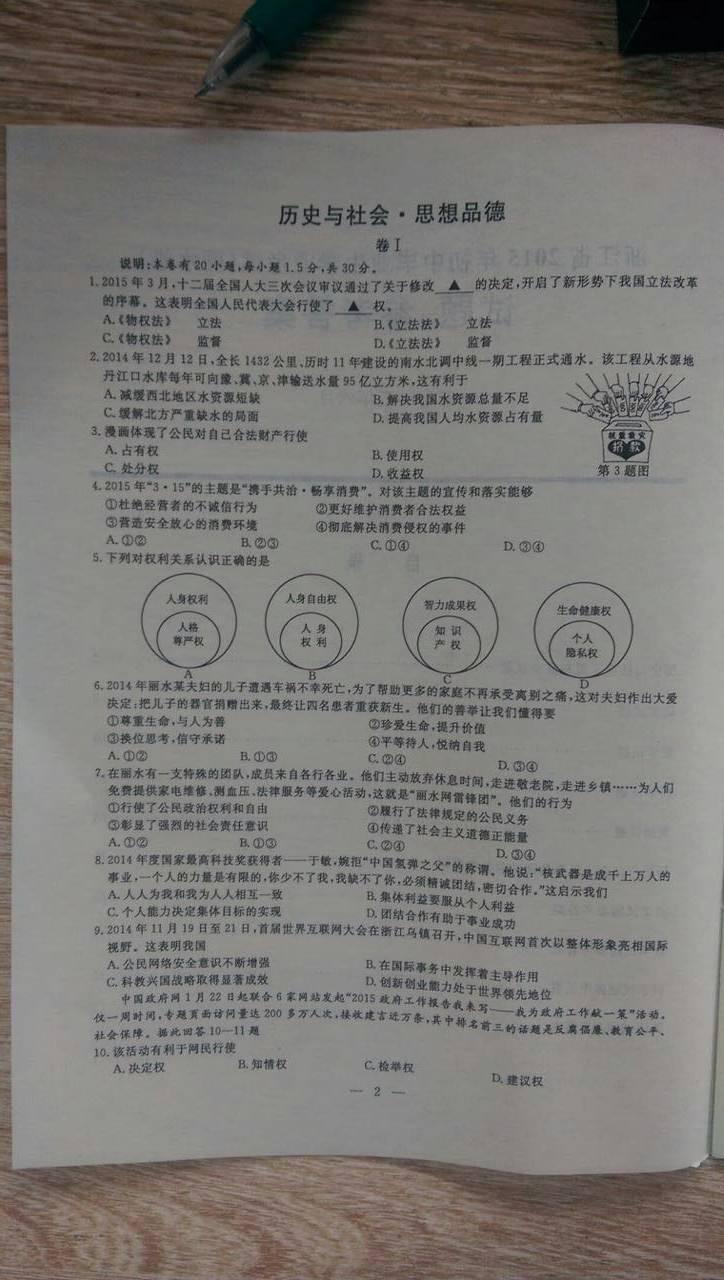 历史与社会·思想品德
卷Ⅰ
说明:本卷有20小题,每小题1.5分,共30分。
1.2015年3月,十二届全国人大三次会议审议通过了关于修改 ▲ 的决定,开启了新形势下我国立法改革
的序幕。这表明全国人民代表大会行使了 ▲ 权。
A.《物权法》 立法 B.《立法法》 立法
C.《物权法》 监督 D.《立法法》 监督
2.2014年12月12日,全长1432公里、历时11年建设的南水北调中线一期工程正式通水。该工程从水源地
丹江口水库每年可向豫、冀、京、津输送水量95亿立方米,这有利于
A.减缓西北地区水资源短缺 B.解决我国水资源总量不足
C.缓解北方严重缺水的局面 D.提高我国人均水资源占有量
3.漫画体现了公民对自己合法财产行使
A.占有权 B.使用权
C.处分权 D.收益权
捐款
第3题图
4.2015年“3·15”的主题是“携手共治·畅享消费”。对该主题的宣传和落实能够
①杜绝经营者的不诚信行为 ②更好维护消费者合法权益
③营造安全放心的消费环境 ④彻底解决消费侵权的事件
A.①② B.②③ C.①④ D.③④
5.下列对权利关系认识正确的是
人身权利 人身自由权 智力成果权 生命健康权
人格 人身 知识 个人
尊严权 权利 产权 隐私权
A B C D
6.2014年丽水某夫妇的儿子遭遇车祸不幸死亡,为了帮助更多的家庭不再承受离别之痛,这对夫妇作出大爱
决定:把儿子的器官捐赠出来,最终让四名患者重获新生。他们的善举让我们懂得要
①尊重生命,与人为善 ②珍爱生命,提升价值
③换位思考,信守承诺 ④平等待人,悦纳自我
A.①② B.①③ C.②④ D.③④
7.在丽水有一支特殊的团队,成员来自各行各业。他们主动放弃休息时间,走进敬老院,走进乡镇……为人们
免费提供家电维修、测血压、法律服务等爱心活动,这就是“丽水网雷锋团”。他们的行为
①行使了公民政治权利和自由 ②履行了法律规定的公民义务
③彰显了强烈的社会责任意识 ④传递了社会主义道德正能量
A.①② B.①③ C.②④ D.③④
8.2014年度国家最高科技奖获得者——于敏,婉拒“中国氢弹之父”的称谓。他说:“核武器是成千上万人的
事业,一个人的力量是有限的,你少不了我,我缺不了你,必须精诚团结,密切合作。”这启示我们
A.人人为我和我为人人相互一致 B.集体利益要服从个人利益
C.个人能力决定集体目标的实现 D.团结合作有助于事业成功
9.2014年11月19日至21日,首届世界互联网大会在浙江乌镇召开,中国互联网首次以整体形象亮相国际
视野。这表明我国
A.公民网络安全意识不断增强 B.在国际事务中发挥着主导作用
C.科教兴国战略取得显著成效 D.创新创业能力处于世界领先地位
中国政府网1月22日起联合6家网站发起“2015政府工作报告我来写——我为政府工作献一策”活动。
仅一周时间,专题页面访问量达200多万人次,接收建言近万条,其中排名前三的话题是反腐倡廉、教育公平、
社会保障。据此回答10—11题
10.该活动有利于网民行使
A.决定权 B.知情权 C.检举权 D.建议权
— 2 —